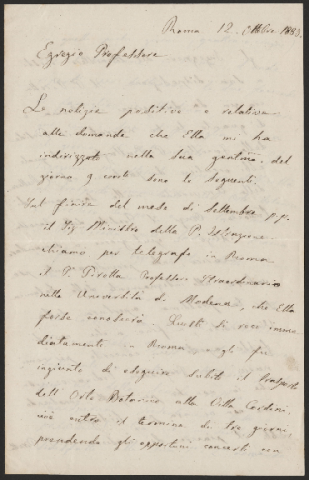 Roma 12. Ottobre 1883.
Egregio Professore
Le notizie positive e relative
alle domande che Ella mi ha
indirizzate nella sua gentilis. del
giorno 9 corrte sono le seguenti.
Sul finire del mese di Settembre p.p.
il Sig Ministro della P. Istruzione
chiamò per telegrafo in Roma
il Dr Pirotta Professore Straordinario
nella Università di Modena, che Ella
forse conoscerà. Questi si recò imme
diatamente a Roma e gli fu
ingiunto di eseguire subito il trasporto
dell' Orto Botanico alla Villa Corsini,
cioè entro il termine di tre giorni
prendendo gli opportuni concerti con